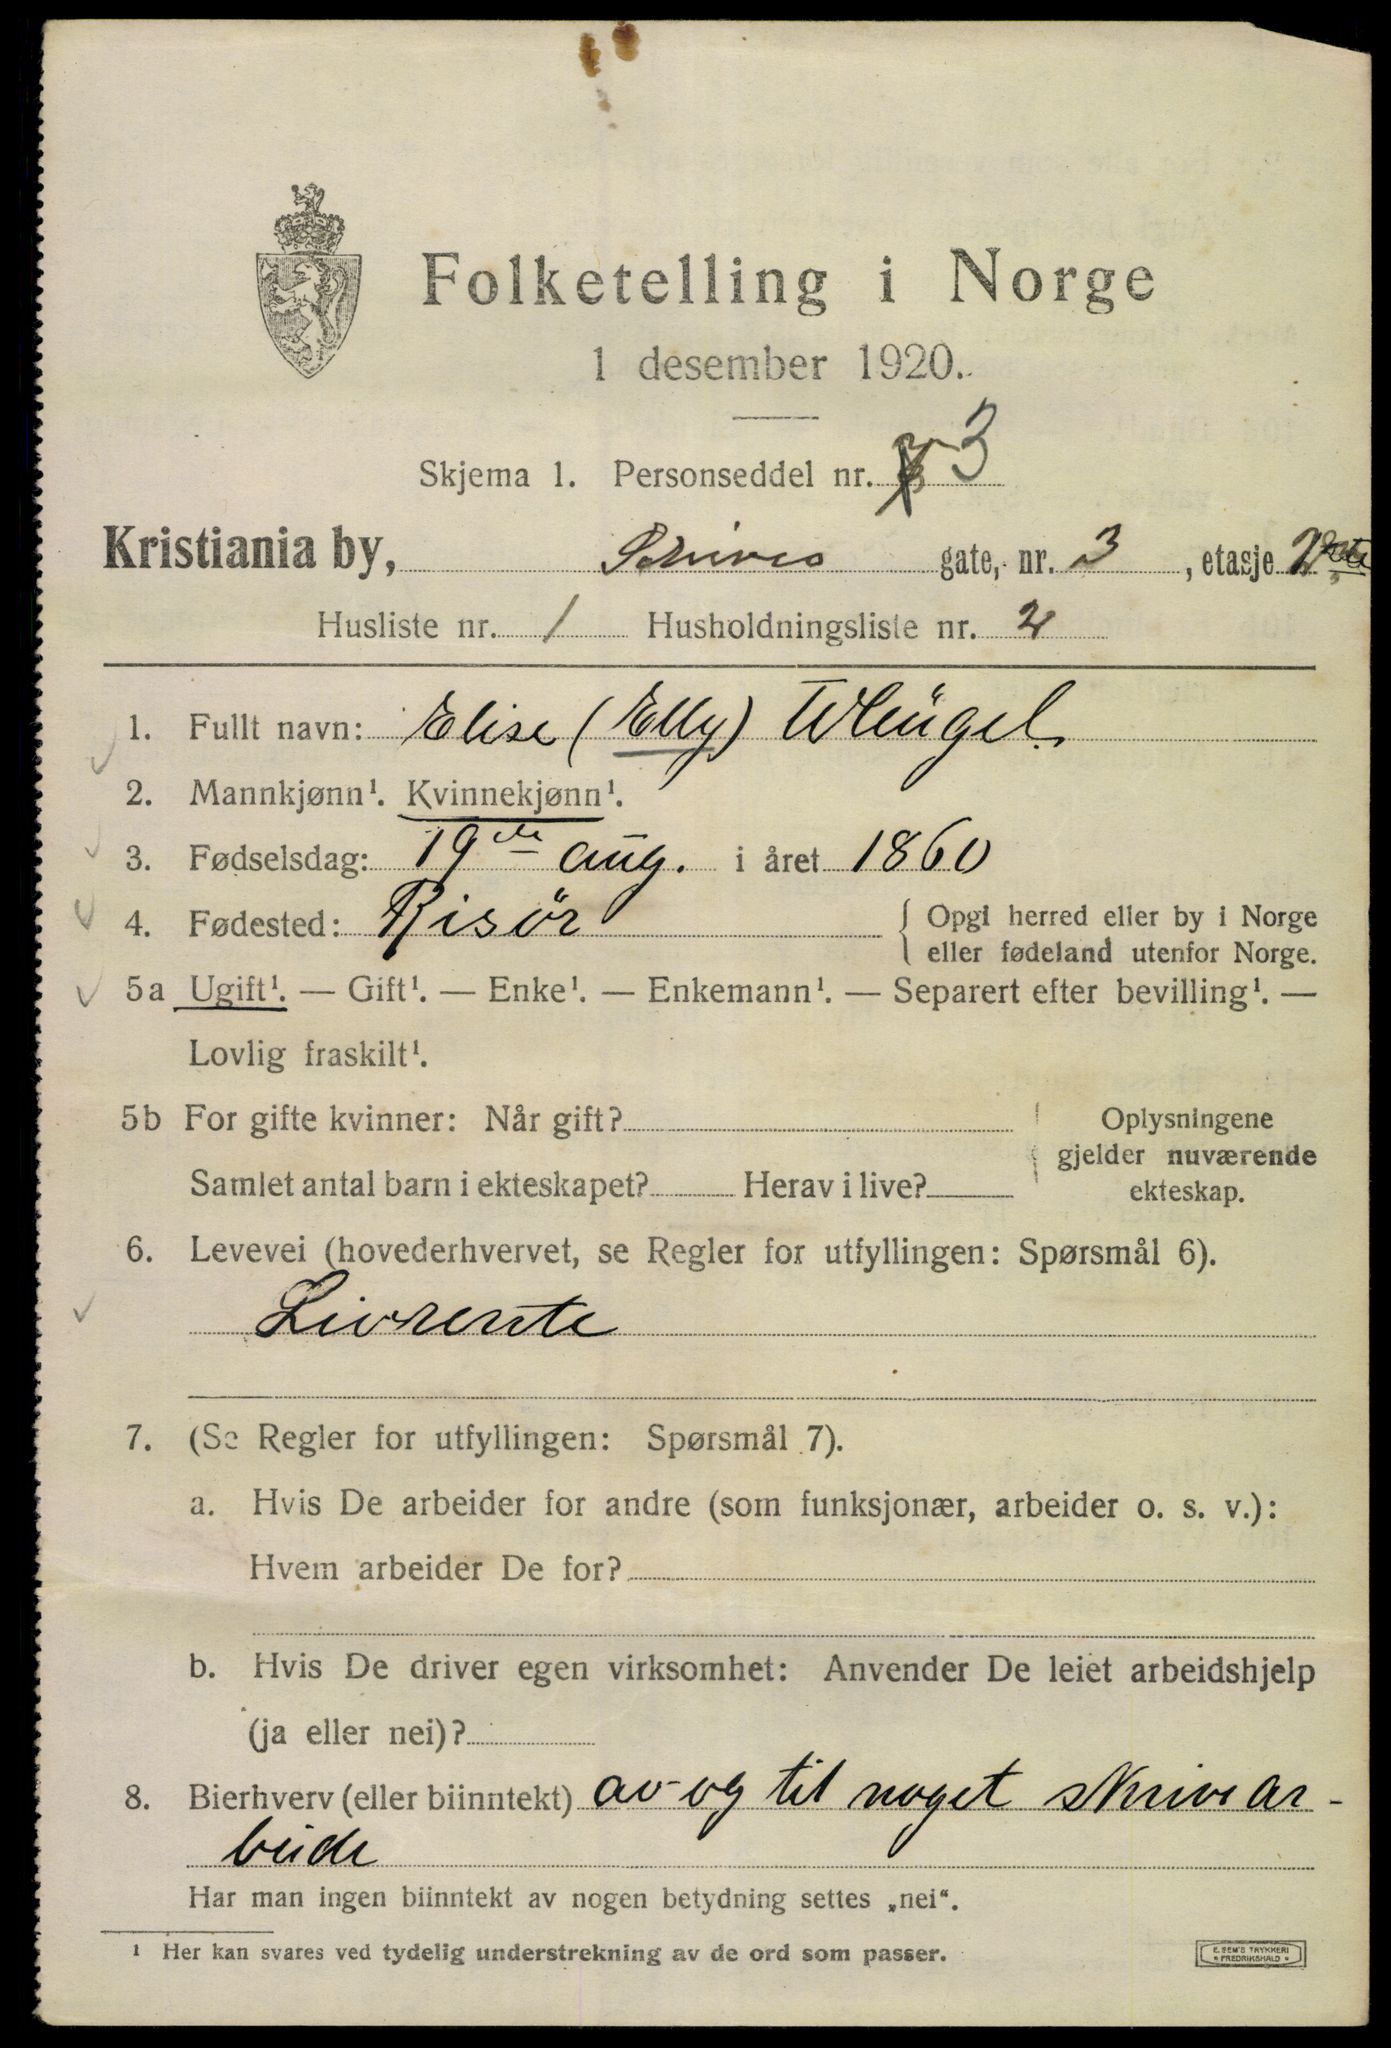 Folketelling i Norge
1 desember 1920.
Skjema 1. Personseddel nr. 3
Kristiania by, Schives gate, nr. 3, etasje 2
Husliste nr. 1 Husholdningsliste nr. 2
1. Fullt navn: Elise (Elly)
2. Mannkjønn¹. Kvinnekjønn¹.
3. Fødselsdag: 19de aug. i året 1860
4. Fødested: Risör { Opgi herred eller by i Norge
eller fødeland utenfor Norge.
5a Ugift¹. — Gift¹. — Enke¹. — Enkemann¹. — Separert efter bevilling¹. —
Lovlig fraskilt¹.
5b For gifte kvinner: Når gift? Oplysningene
gjelder nuværende
Samlet antal barn i ekteskapet? Herav i live? ekteskap.
6. Levevei (hovederhvervet, se Regler for utfyllingen: Spørsmål 6).
Livrente
7. (Se Regler for utfyllingen: Spørsmål 7).
a. Hvis De arbeider for andre (som funksjonær, arbeider o. s. v.):
Hvem arbeider De for?
b. Hvis De driver egen virksomhet: Anvender De leiet arbeidshjelp
(ja eller nei)?
8. Bierhverv (eller biinntekt) av og til noget skrivear-
beide
Har man ingen biinntekt av nogen betydning settes „nei“.
¹ Her kan svares ved tydelig understrekning av de ord som passer.
E. SEM'S TRYKKERI
FREDRIKSHALD